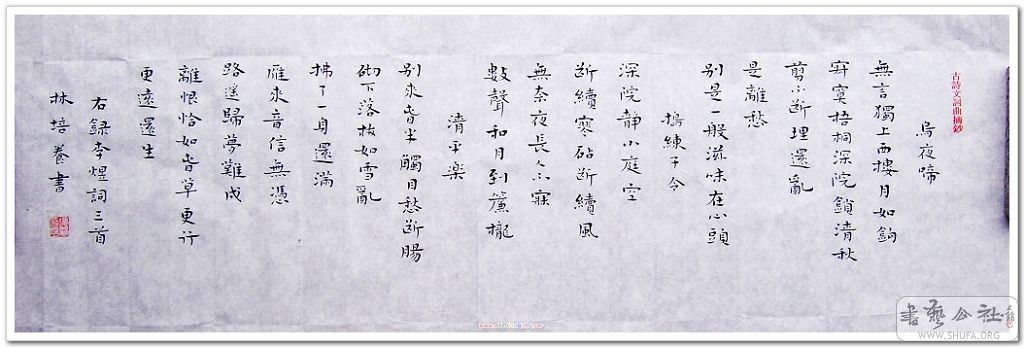 古詩文詞曲摘鈔
烏夜啼
無言獨上西樓月如鉤
寂寞梧桐深院鎖清秋
剪不断理還亂
是離愁
別是一般滋味在心頭
搗練子令
深院靜小庭空
断續寒砧断續風
無奈夜長人不寐
數聲和月到簾櫳
清平樂
別來春半觸目愁断腸
砌下落梅如雪亂
拂了一身還滿
雁來音信無憑
路遙歸夢難成
離恨恰如春草更行
更遠還生
右録李煜詞三首
林培養書
書藝公社
WWW.SHUFA.ORG